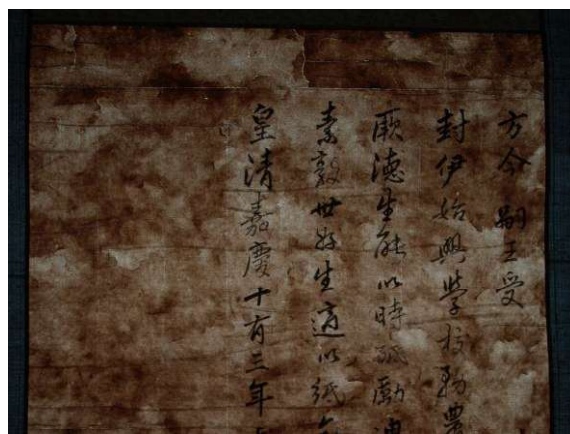 方今 嗣王受
封伊始興學校勸農
厥德生能以時砥勵
素敦世好生適以紙
皇清嘉慶十有三年